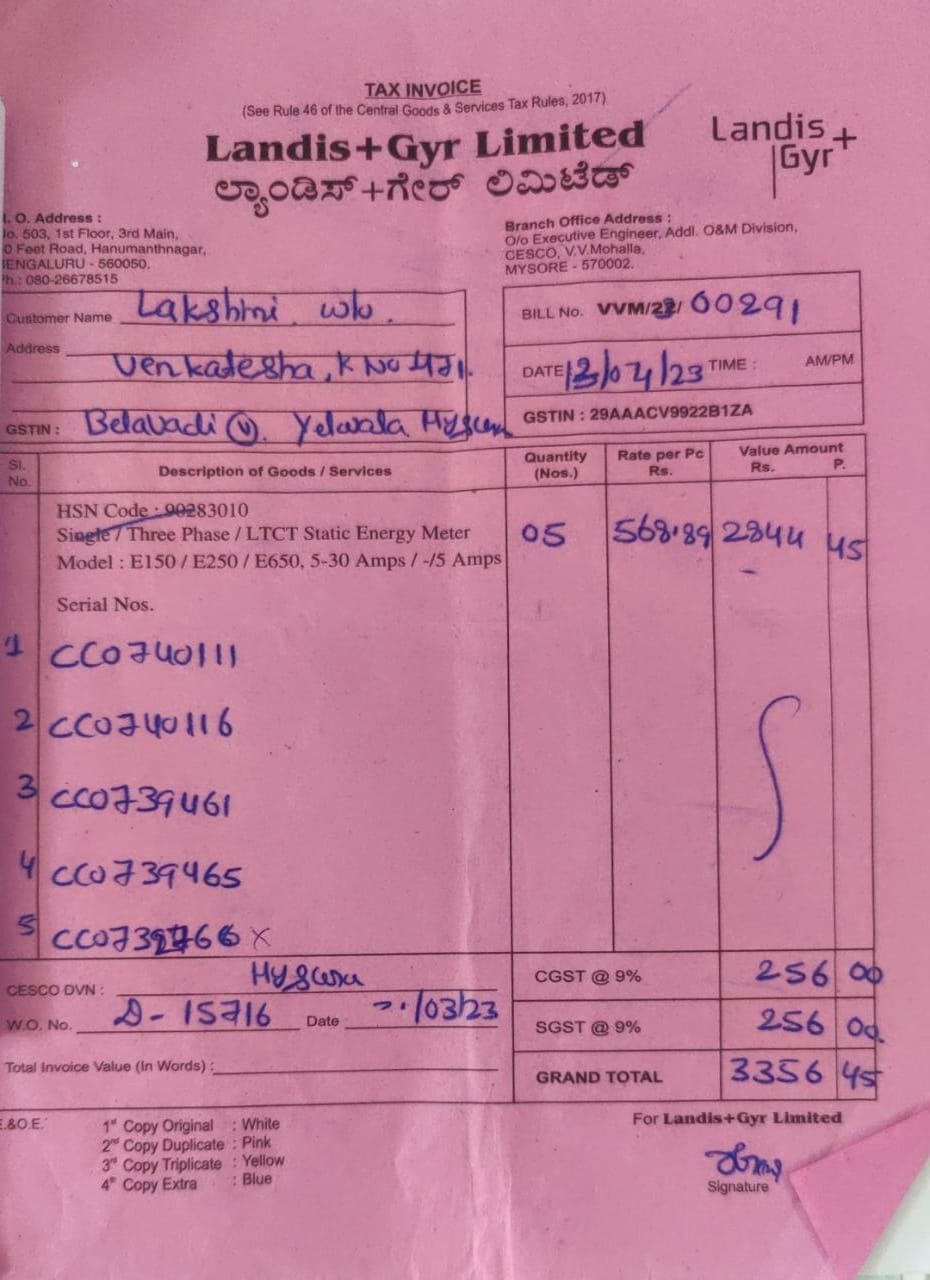 TAX INVOICE
(See Rule 46 of the Central Goods & Services Tax Rules, 2017)
Landis+Gyr Limited
ಲ್ಯಾಂಡಿಸ್+ಗೇರ್ ಲಿಮಿಟೆಡ್
Landis
Gyr+
. O. Address :
o. 503, 1st Floor, 3rd Main,
0 Feet Road, Hanumanthnagar,
ENGALURU - 560050.
h.: 080-26678515
Branch Office Address :
O/o Executive Engineer, Addl. O&M Division,
CESCO, V.V.Mohalla,
MYSORE - 570002.
Customer Name Lakshmi w/o
Address Venkatesha, K No 471.
GSTIN : Belavadi (V). Yelwala Mysuru
BILL No. VVM/22/ 00291
DATE 13/04/23 TIME : AM/PM
GSTIN : 29AAACV9922B1ZA
Sl. No. Description of Goods / Services Quantity (Nos.) Rate per Pc Rs. Value Amount Rs. P.
HSN Code : 90283010
Single / Three Phase / LTCT Static Energy Meter 05 568.89 2844 45
Model : E150 / E250 / E650, 5-30 Amps / -/5 Amps
Serial Nos.
1 CC0740111
2 CC0740116
3 CC0739461
4 CC0739465
5
CESCO DVN : Mysuru
W.O. No. D-15716 Date /03/23
Total Invoice Value (In Words) :
CGST @ 9% 256 00
SGST @ 9% 256 00
GRAND TOTAL 3356 45
E.&O.E.
1st Copy Original : White
2nd Copy Duplicate : Pink
3rd Copy Triplicate : Yellow
4th Copy Extra : Blue
For Landis+Gyr Limited
Signature